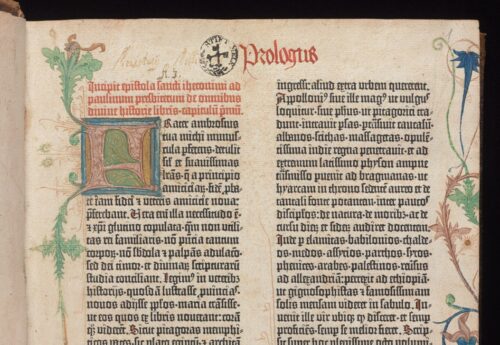 Prologus
Incipit epistola sancti iheronimi ad
paulinum presbiterum de omnibus
divine historie libris. capitulum pmu.
Frater ambrosius
tua michi munus-
cula pferens. detulit
sil et suavissimas
lras. q a principio
amicicia₄. fide pbate
iam fidei et veteris amicicie nova
pferebant. Vera eni illa necessitudo e.
et xpi glutino copulata. qm non utili-
tas rei familiaris. no pntia tantum
corpo₄. no sbdola et palpas adulaco.
sed dei timor. et divina₄ scriptura₄
studia conciliant. Legim in veterib
historijs. quosda lustrasse puincias.
novos adijsse plos. maria transisse.
ut eos quos ex libris noverant: cora
q; viderent. Sicut pitagoras memphi-
ingress: aliud extra urbem quererent.
Appolloni sive ille mag ut vulgus
loquitur. sive phus ut pitagorici tra-
dunt. intravit psas. ptransivit caucasu.
albanos. scithas. massagetas. opulen-
tissima indie regna penetravit: et ad
extremum latissimo physon amne
trasmisso puenit ad bragmanas: ut
hyarcam in throno sedente aureo et de
tantali fonte potantem. inter paucos
discipulos: de natura. de moribus. ac de
cursu dieru et sideru audiret docentem.
Inde p elamitas. babilonios. chalde-
os. medos. assyrios. parthos. syros.
phenices. arabes. palestinos. reversus
ad allexandria: perrexit ad ethiopia.
ut gignosophistas et famosissimam
solis mensam videret in sabulo. In-
venit ille vir ubiq; qd disceret: et semp
proficiens. semp se melior fieret. Scrip-